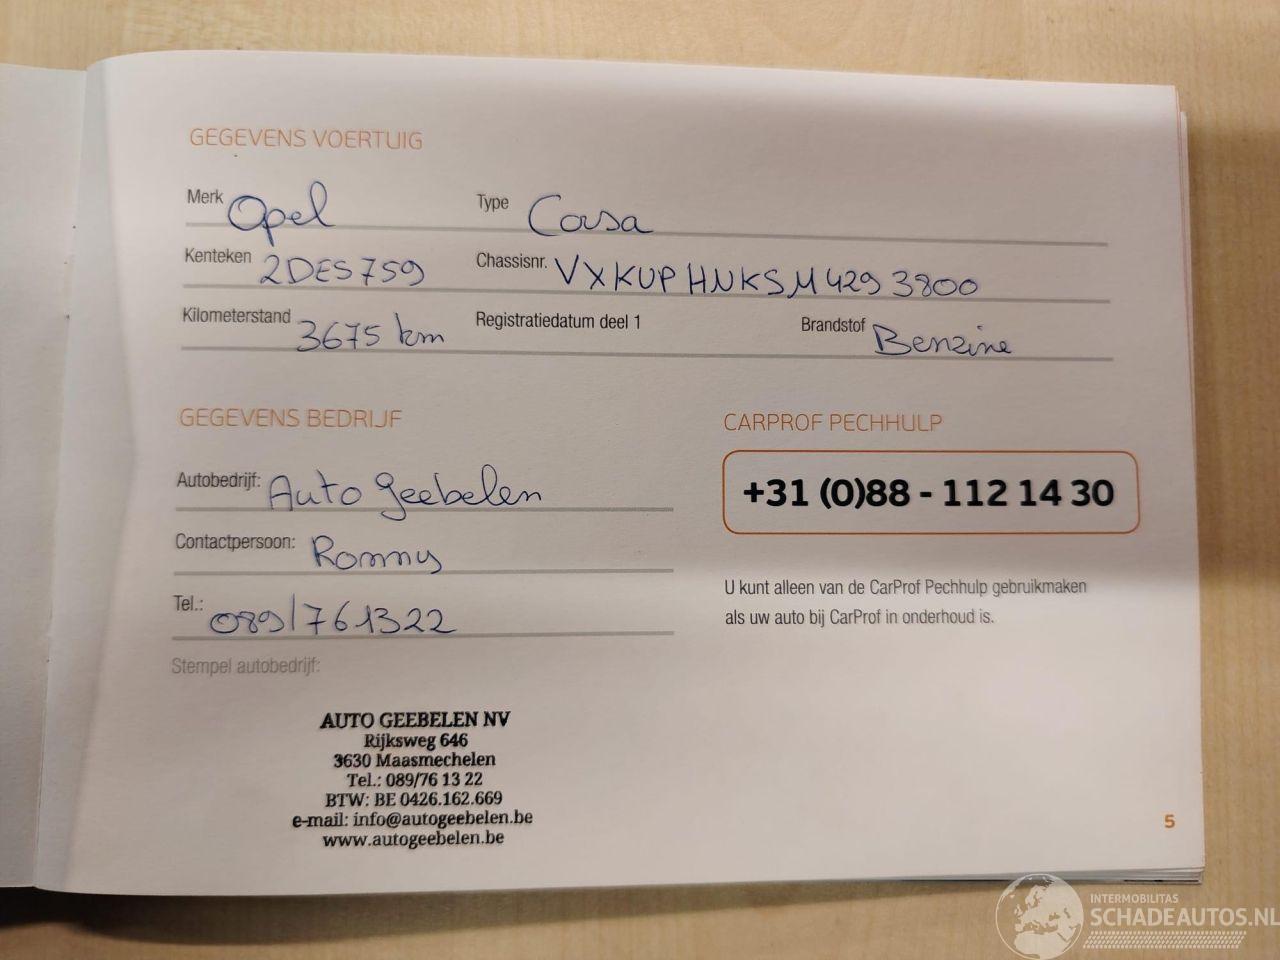 GEGEVENS VOERTUIG
Merk Opel Type Corsa
Kenteken 2DES759 Chassisnr. VXKUPHNKSM4293800
Kilometerstand 3675 km Registratiedatum deel 1 Brandstof Benzine
GEGEVENS BEDRIJF
Autobedrijf: Auto Geebelen
Contactpersoon: Rommy
Tel.: 089/761322
Stempel autobedrijf:
AUTO GEEBELEN NV
Rijksweg 646
3630 Maasmechelen
Tel.: 089/76 13 22
BTW: BE 0426.162.669
e-mail: info@autogeebelen.be
www.autogeebelen.be
CARPROF PECHHULP
+31 (0)88 - 112 14 30
U kunt alleen van de CarProf Pechhulp gebruikmaken
als uw auto bij CarProf in onderhoud is.
5
INTERMOBILITAS
SCHADEAUTOS.NL